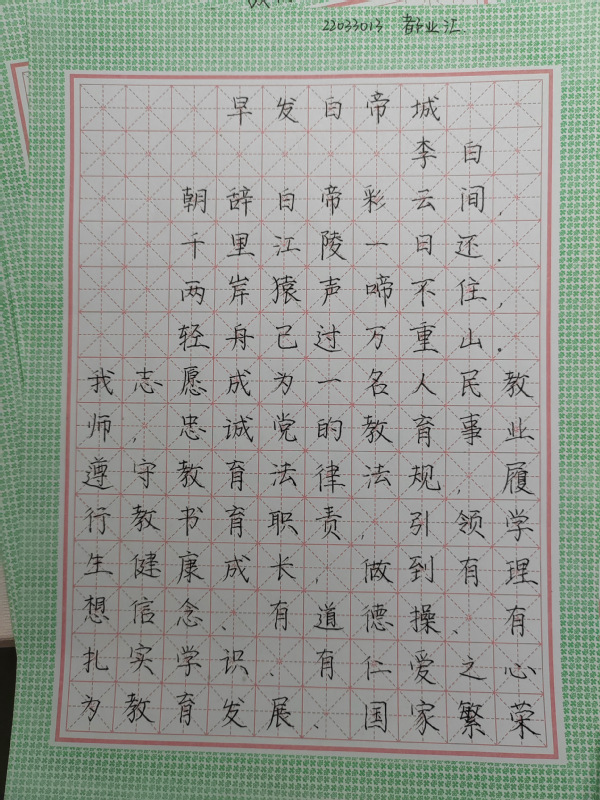 22033013 都业汇.
早发白帝城
李白
朝辞白帝彩云间,
千里江陵一日还.
两岸猿声啼不住,
轻舟已过万重山.
我志愿成为一名人民教
师,忠诚党的教育事业
遵守教育法律法规,履
行教书育职责,引领学
生健康成长,做到有理
想信念、有道德操、有
扎实学识、有仁爱之心
为教育发展、国家繁荣